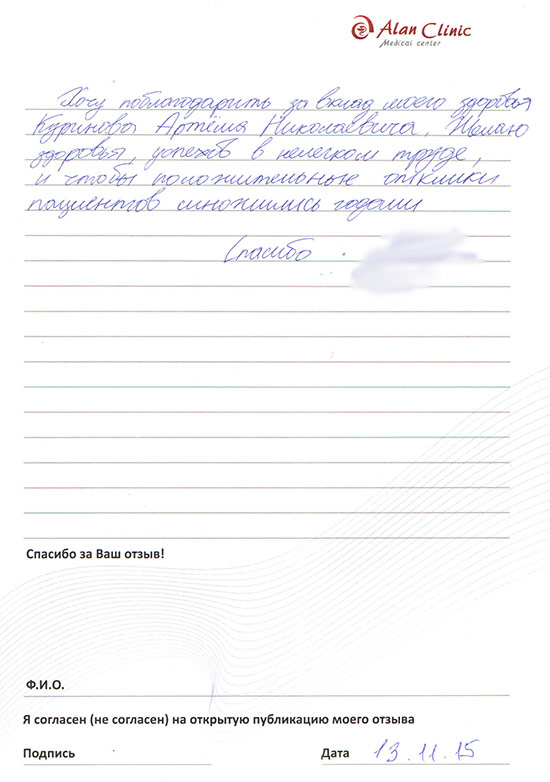 Alan Clinic
Medical center
Хочу поблагодарить за вклад моего здоровья
Куринова Артёма Николаевича, Желаю
здоровья, успехов в нелегком труде,
и чтобы положительные отклики
пациентов множились годами
Спасибо
Спасибо за Ваш отзыв!
Ф.И.О.
Я согласен (не согласен) на открытую публикацию моего отзыва
Подпись Дата 13.11.15